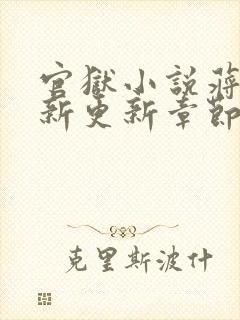 官獄小說蔣
新更新章節
克里斯波什